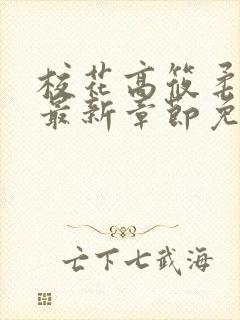 校花高筱柔
最新章節免
亡下七武海